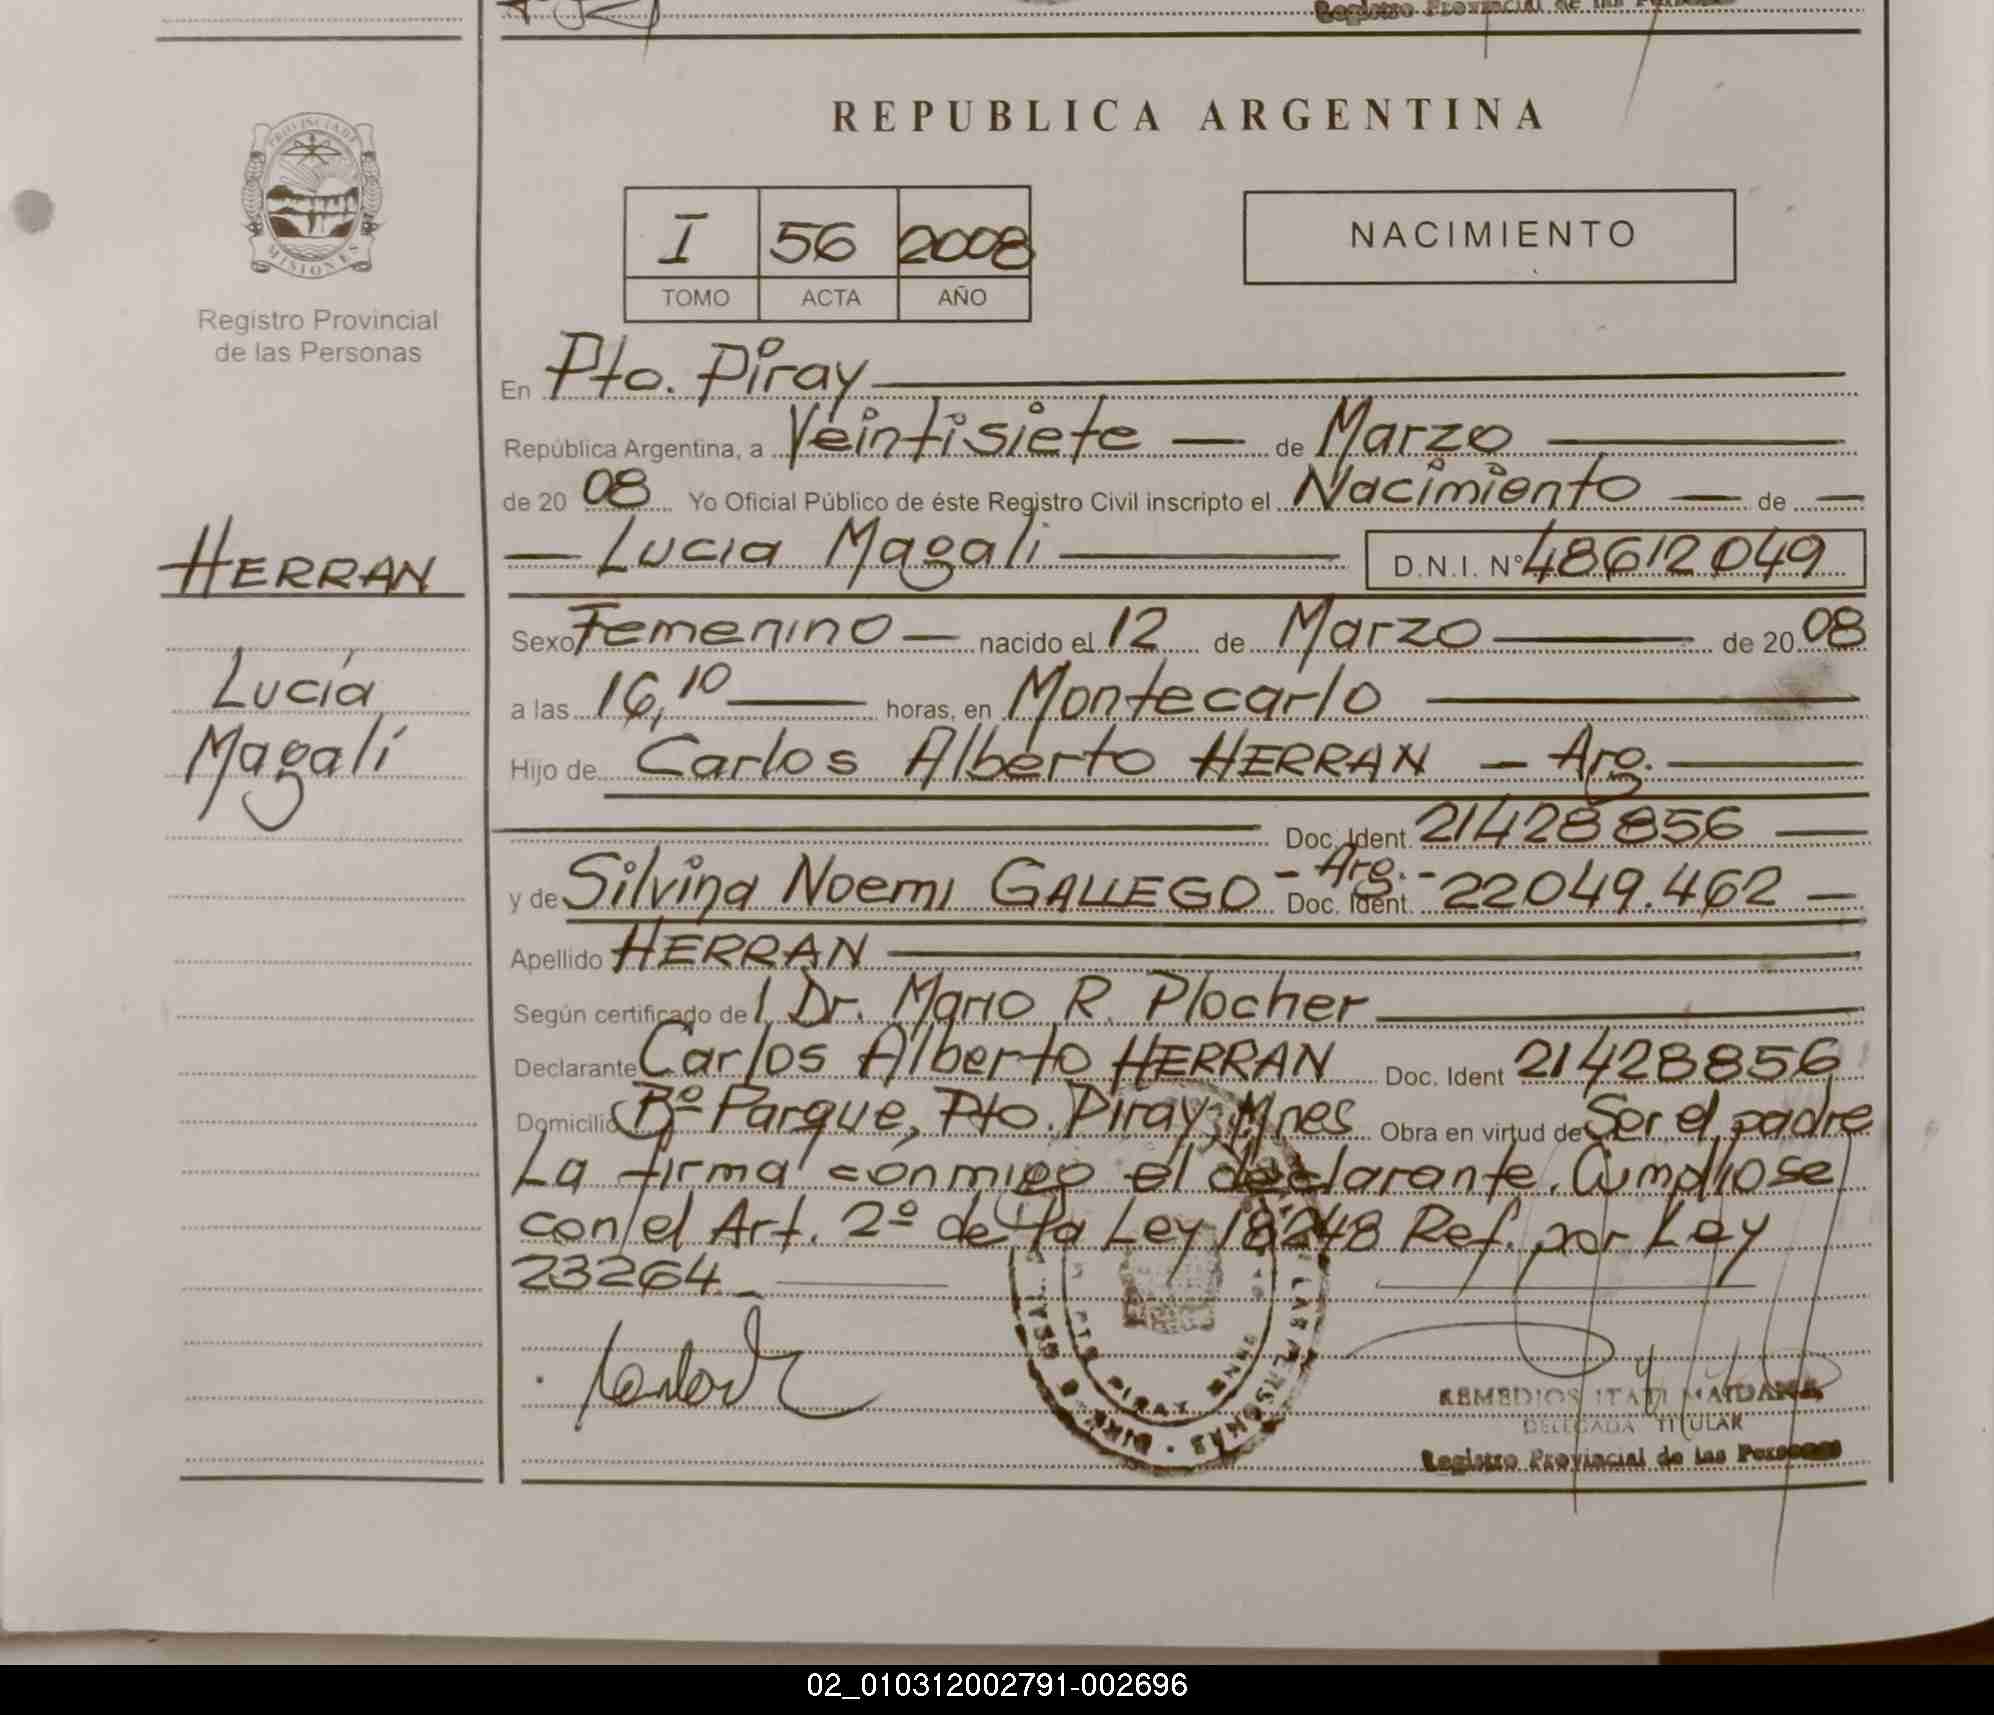 Registro Provincial de las Personas
REPUBLICA ARGENTINA
PROVINCIA DE
MISIONES
Registro Provincial
de las Personas
I 56 2008
TOMO ACTA AÑO
NACIMIENTO
HERRAN
Lucía
Magalí
En Pto. Piray
República Argentina, a Veintisiete — de Marzo
de 20 08 Yo Oficial Público de éste Registro Civil inscripto el Nacimiento — de —
— Lucia Magali — D.N.I. N° 48612049
Sexo Femenino — nacido el 12 de Marzo — de 20 08
a las 16,10 — horas, en Montecarlo
Hijo de Carlos Alberto HERRAN — Arg.
Doc. Ident. 21428856 —
y de Silvina Noemi GALLEGO - Arg. - Doc. Ident. 22049.462 —
Apellido HERRAN
Según certificado de l Dr. Mario R. Plocher
Declarante Carlos Alberto HERRAN Doc. Ident 21428856
Domicilio Bº Parque, Pto. Piray, Mnes Obra en virtud de Ser el padre
La firma conmigo el declarante. Cumpliose
con el Art. 2º de la Ley 18248 Ref. por Ley
23264._
PTO PIRAY
REMEDIOS ITATI MAIDANA
DELEGADA TITULAR
Registro Provincial de las Personas
02_010312002791-002696